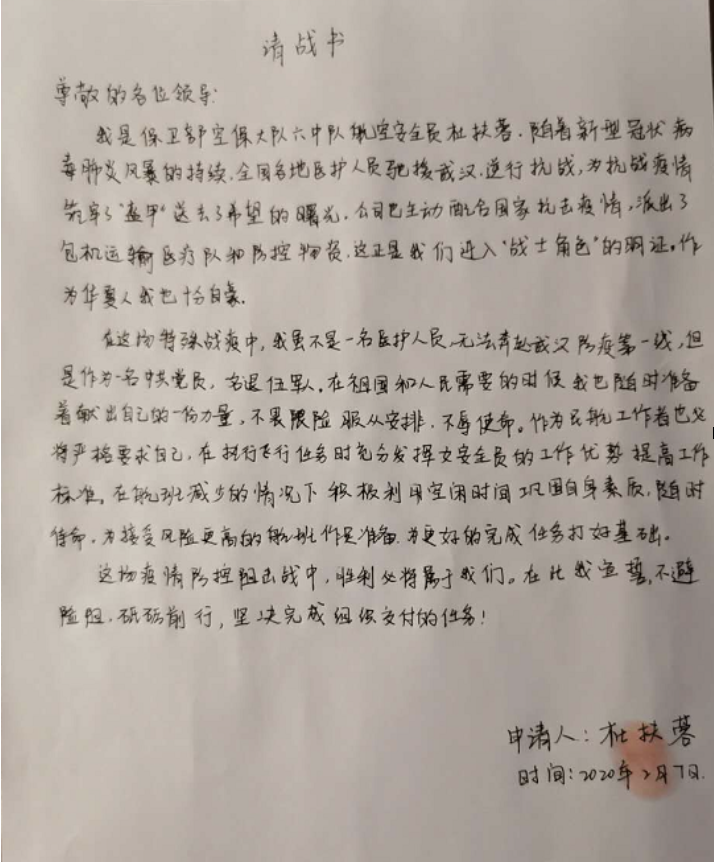 请战书
尊敬的各位领导:
我是保卫部空保大队六中队航空安全员杜扶蓉.随着新型冠状病
毒肺炎风暴的持续.全国各地医护人员驰援武汉.逆行抗战,为抗战疫情
筑牢了"盔甲"送去了希望的曙光.公司已主动配合国家抗击疫情,派出了
包机运输医疗队和防控物资.这正是我们进入"战士角色"的明证。作
为华夏人我也怡自豪.
在这场特殊战疫中,我虽不是一名医护人员.无法奔赴武汉防疫第一线,但
是作为一名中共党员,名退伍军人.在祖国和人民需要的时候我也随时准备
着献出自己的一份力量,不畏艰险 服从安排.不辱使命。作为民航工作者也必
将严格要求自己.在执行飞行任务时充分发挥女安全员的工作优势 提高工作
标准。在航班减少的情况下 积极利用空闲时间 巩固自身素质,随时
待命.为接受风险更高的航班作足准备.为更好的完成任务打好基础。
这场疫情防控阻击战中,胜利必将属于我们。在此我宣誓,不避
险阻.砥砺前行,坚决完成组织交付的任务!
申请人:杜扶蓉
时间:2020年2月7日.